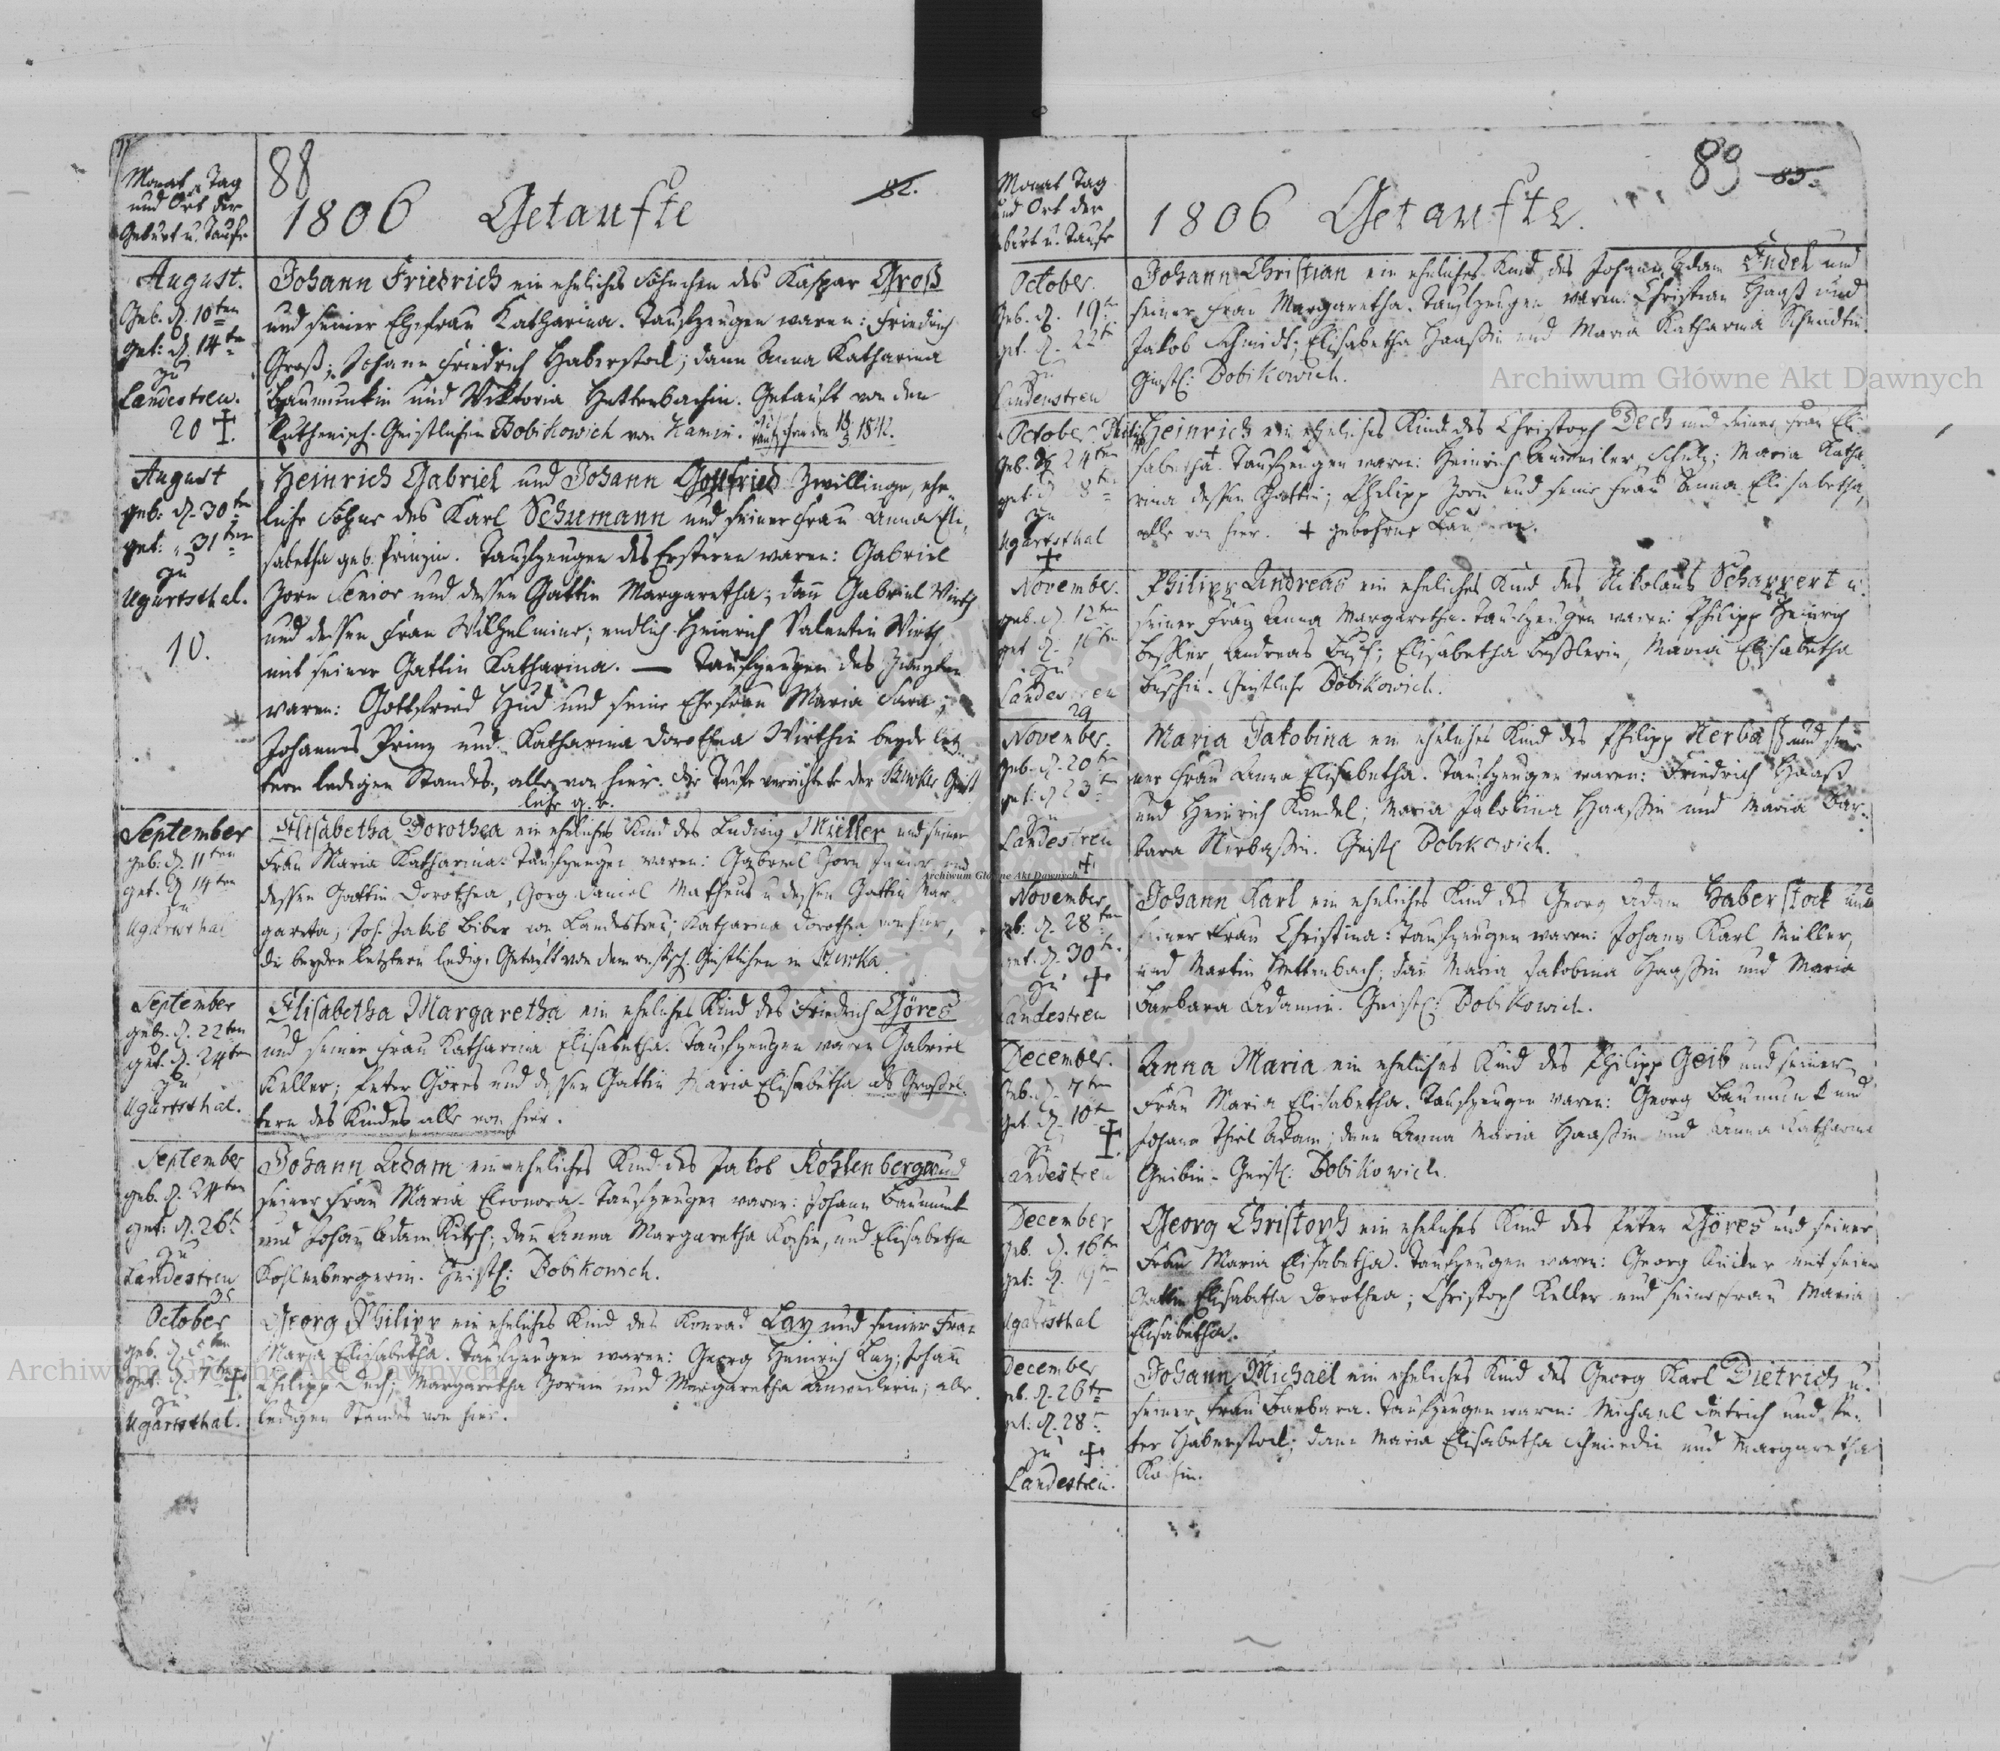 88
82.
Monat, Tag
und Ort der
Geburt u. Taufe
1806 Getaufte
August.
Geb. d. 10ten
get: d. 14ten
zu
Landestreu.
20 +
Johann Friedrich ein eheliches Söhnchen des Kaspar Groß
und seiner Ehefrau Katharina. Taufzeugen waren: Friedrich
Groß; Johann Friedrich Haberstock; dann Anna Katharina
Baumunkin und Viktoria Hettenbachin. Getauft von dem
Ruthenisch. Geistlichen Dobikowich von Kamin. 1842.
August
geb: d. 30ten
get: " 31ten
zu
Ugartsthal.
10.
Heinrich Gabriel und Johann Gottfried Zwillinge, ehe-
liche Söhne des Karl Schumann und seiner Frau Anna Eli-
sabetha geb. Prinzin. Taufzeugen des Ersteren waren: Gabriel
Zorn Senior und dessen Gattin Margaretha; dann Gabriel Wirth
und dessen Frau Wilhelmine; endlich Heinrich Valentin Wirth
mit seiner Gattin Katharina. — Taufzeugen des Zweyten
waren: Gottfried Hud und seine Ehefrau Maria Sara;
Johannes Prinz und Katharina Dorothea Wirthin beyde letz-
tern ledigen Standes, alle von hier. Die Taufe verrichtete der Geist
liche g. r.
September
geb: d. 11ten
get. d. 14ten
zu
Ugartsthal
Elisabetha Dorothea ein eheliches Kind des Ludwig Müller und seiner
Frau Maria Katharina. Taufzeugen waren: Gabriel Zorn Junior und
dessen Gattin Dorothea, Georg Daniel Matheus u dessen Gattin Mar-
gareta; Joh. Jakob Biber von Landestreu; Katharina Dorothea von hier,
die beyden letztern ledig. Getauft von dem Geistlichen in
September
geb. d. 22ten
get. d. 24ten
zu
Ugartsthal.
Elisabetha Margaretha ein eheliches Kind des Friedrich Göres
und seiner Frau Katharina Elisabetha. Taufzeugen waren Gabriel
Keller; Peter Göres und dessen Gattin Maria Elisabetha als Großel-
tern des Kindes, alle von hier.
September
geb. d. 24ten
get: d. 26t
zu
Landestreu
35
Johann Adam ein eheliches Kind des Jakob Kohlenberger und
seiner Frau Maria Eleonora. Taufzeugen waren: Johann Baumunk
und Johann Adam Kitsch; dann Anna Margaretha Kochin, und Elisabetha
Kohlenbergerin. Geistl: Dobikowich.
October
geb. d. 5ten
get: d. 7ten +
zu
Ugartsthal.
Georg Philipp ein eheliches Kind des Konrad Lay und seiner Frau
Maria Elisabetha. Taufzeugen waren: Georg Heinrich Lay; Johann
Philipp Dech; Margaretha Zornin und Margaretha Anweilerin; alle
ledigen Standes von hier.
89
83.
Monat Tag
und Ort der
burt u. Taufe
1806 Getaufte.
October.
Geb. d. 19ten
get. d. 22ten
zu
Landenstreu
Johann Christian ein eheliches Kind des Johann Adam Indel und
seiner Frau Margaretha. Taufzeugen waren: Christian Haaß und
Jakob Schmidt; Elisabetha Haaßin und Maria Katharina Schmidtin.
Geistl: Dobikowich.
October
geb. d. 24ten
get. d. 8ten
zu
Ugartsthal
+
Heinrich ein eheliches Kind des Christoph Dech und seiner Frau Eli-
sabetha+. Taufzeugen waren: Heinrich Anweiler, Schulz; Maria Katha-
rina dessen Gattin; Philipp Zorn und seine Frau Anna Elisabetha,
alle von hier. + gebohrne
November.
geb. d. 12ten
get. d. 16ten
zu
Landestreu
29
Philipp Andreas ein eheliches Kind des Nikolaus Schappert u.
seiner Frau Anna Margaretha. Taufzeugen waren: Philipp Heinrich
Beßler, Andreas Busch; Elisabetha Beßlerin, Maria Elisabetha
Buschin. Geistliche Dobikowich.
November.
geb. d. 20ten
get: d 23ten
zu
Landestreu
+
Maria Jakobina ein eheliches Kind des Philipp Nerbaß und sei-
ner Frau Anna Elisabetha. Taufzeugen waren: Friedrich Haaß
und Heinrich Kandel; Maria Jakobina Haaßin und Maria Bar-
bara Nerbaßin. Geistl Dobikowich.
November
geb: d. 28ten
get. d. 30ten
zu +
Landestreu
Johann Karl ein eheliches Kind des Georg Adam Haberstock und
seiner Frau Christina: Taufzeugen waren: Johann Karl Müller,
und Martin Hettenbach; dann Maria Jakobina Haaßin und Maria
Barbara Adamin. Geistl: Dobikowich.
December.
Geb. d. 7ten
Get. d. 10t
+
zu
Landestreu
Anna Maria ein eheliches Kind des Philipp Geib und seiner
Frau Maria Elisabetha. Taufzeugen waren: Georg Baumunk und
Johann Thiel Adam; dann Anna Maria Haaßin und Anna Katharina
Geibin. Geistl: Dobikowich.
December
geb. d. 16ten
get: d. 19ten
Ugartsthal
Georg Christoph ein eheliches Kind des Peter Göres und seiner
Frau Maria Elisabetha. Taufzeugen waren: Georg mit seiner
Gattin Elisabetha Dorothea; Christoph Keller und seine Frau Maria
Elisabetha.
December
geb. d. 26ten
get. d. 28t
zu +
Landestreu.
Johann Michael ein eheliches Kind des Georg Karl Dietrich u.
seiner Frau Barbara. Taufzeugen waren: Michael Dietrich und Pe-
ter Haberstock; dann Maria Elisabetha Schmiedin und Margaretha
Kochin.
Archiwum Główne Akt Dawnych
Archiwum Główne Akt Dawnych
Archiwum Główne Akt Dawnych